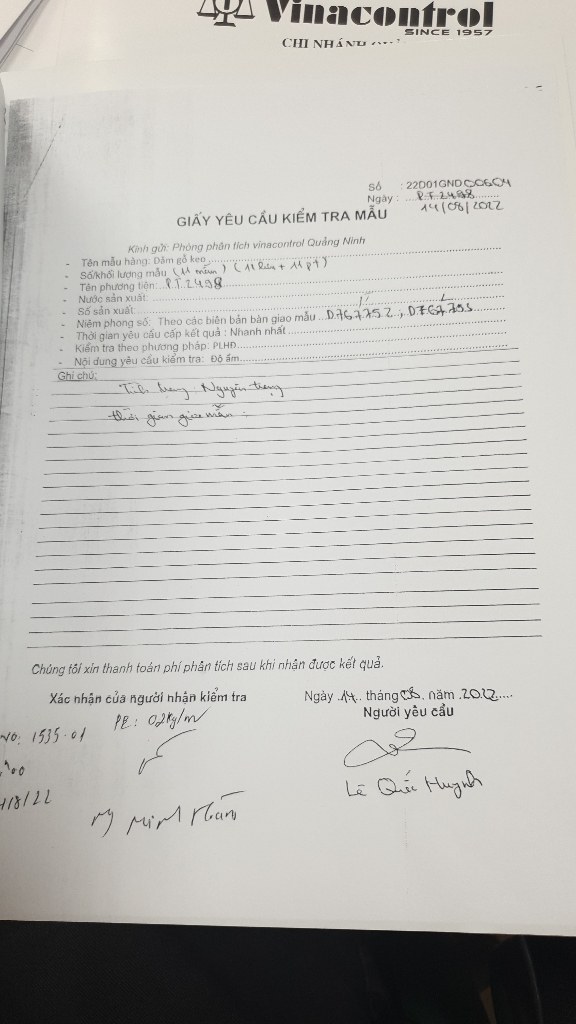 Vinacontrol
SINCE 1957
CHI NHÁNH
Số : 22D01GND00604
Ngày : P.T.2498
14/08/2022
GIẤY YÊU CẦU KIỂM TRA MẪU
Kính gửi: Phòng phân tích vinacontrol Quảng Ninh
- Tên mẫu hàng: Dăm gỗ keo
- Số/khối lượng mẫu (11 mẫu) (11 lưu + 11 pt)
- Tên phương tiện: P.T.2498
- Nước sản xuất:
- Số sản xuất
- Niêm phong số: Theo các biên bản bàn giao mẫu D767752 ; D767755
- Thời gian yêu cầu cấp kết quả : Nhanh nhất
- Kiểm tra theo phương pháp: PLHĐ
- Nội dung yêu cầu kiểm tra: Độ ẩm
Ghi chú:
Tình trạng : Nguyên trạng
thời gian giao mẫu :
Chúng tôi xin thanh toán phí phân tích sau khi nhận được kết quả.
Xác nhận của người nhận kiểm tra
Ngày 14 tháng 08 năm 2022
Người yêu cầu
PE: 0,2kg/m
NO: 1535-01
/8/22
Lê Quốc Huynh